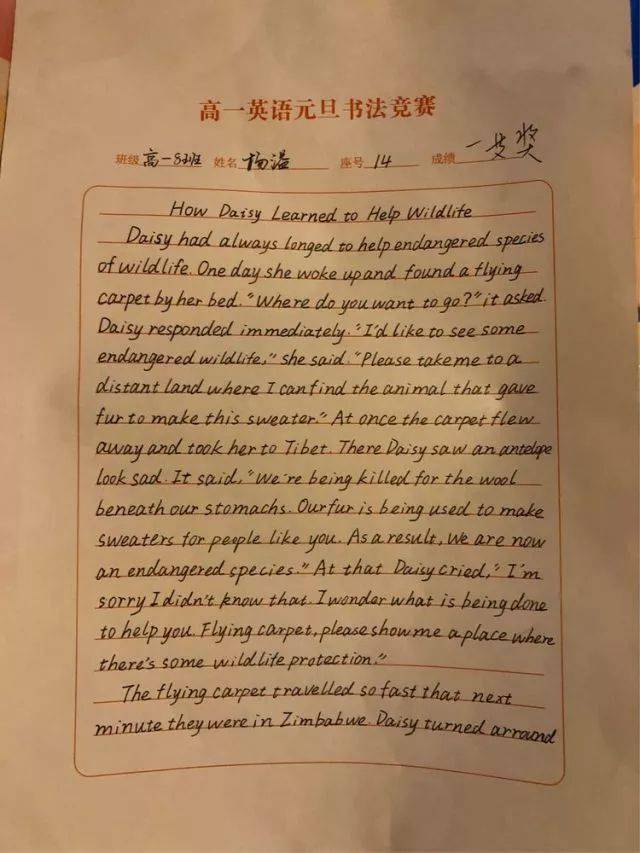 高一英语元旦书法竞赛
班级 高一8班 姓名 杨溢 座号 14 成绩 一支奖
How Daisy Learned to Help Wildlife
Daisy had always longed to help endangered species
of wildlife. One day she woke up and found a flying
carpet by her bed. "Where do you want to go?" it asked.
Daisy responded immediately. "I'd like to see some
endangered wildlife," she said. "Please take me to a
distant land where I can find the animal that gave
fur to make this sweater." At once the carpet flew
away and took her to Tibet. There Daisy saw an antelope
look sad. It said, "We're being killed for the wool
beneath our stomachs. Our fur is being used to make
sweaters for people like you. As a result, we are now
an endangered species." At that Daisy cried, "I'm
sorry I didn't know that. I wonder what is being done
to help you. Flying carpet, please show me a place where
there's some wildlife protection."
The flying carpet travelled so fast that next
minute they were in Zimbabwe. Daisy turned arround